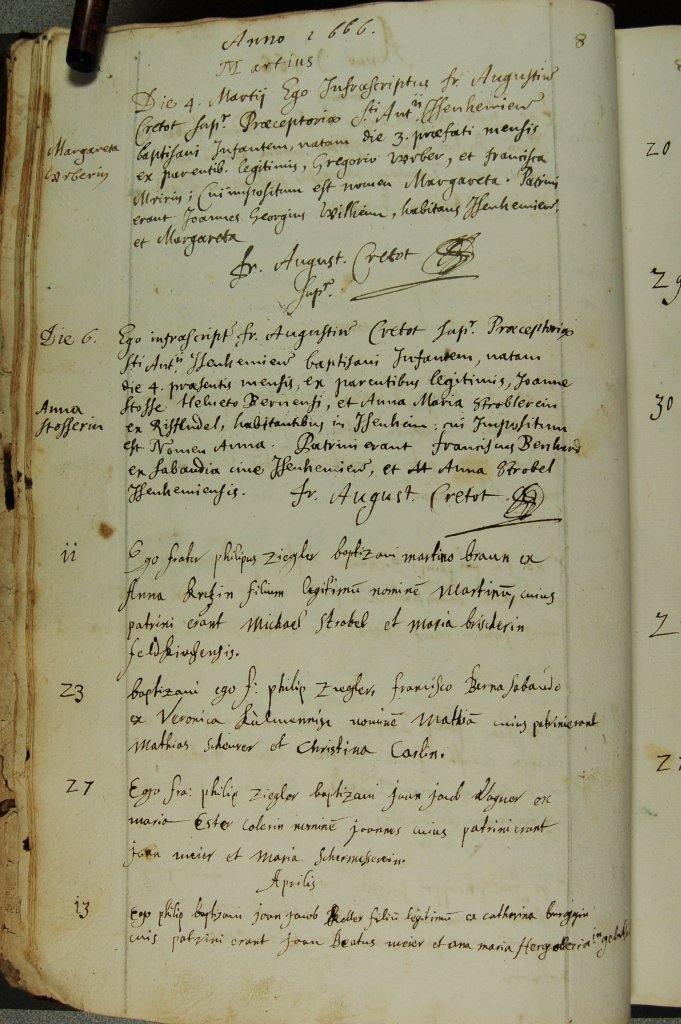 8
Anno 1666.
Martius
Die 4. Martij Ego Infrascriptus fr. Augustin9
Cretot Supr. Præceptoriæ Sti Antii Isenhemiens
baptisavi Infantem, natam die 3. præfati mensis
Margareta
Weberin
ex parentib. legitimis, Gregorio Weber, et francisca
; Cui impositum est nomen Margareta. Patrini
erant Joannes Georgius Wilhelm, habitans Isenhemiens,
et Margareta
fr. August. Cretot
Supr.
Die 6. Ego infrascript9 fr. Augustin9 Cretot Supr. Præceptoriæ
Sti Antii Isenhemiens baptisavi Infantem, natam
die 4. præsentis mensis, ex parentibus legitimis, Joanne
Anna
Stosserin
Stosse Helveto Bernensi, et Anna Maria Stroblerin
ex, habitantibus in Isenheim: cui Impositum
est Nomen Anna. Patrini erant franciscus Bernhard
ex Sabaudia Isenhemiens, et Anna Strobel
Isenhemiensis. fr. August. Cretot
11 Ego frater philipus Ziegler baptizavi martino braun ex
Anna filium legitimū nominē Martinū, cuius
patrini erant Michael Strobel et maria brischerin
feldkirchensis.
23 baptizavi ego f: philip Ziegler, francisco Berna Sabaudo
ex Veronica nominē Mathiā cuius patrini erant
Mathias Scheurer et Christina Carlin.
27 Ego fra: philip Ziegler baptizavi joan jacob Vagner ex
maria Ester Colerin nominē joannes cuius patrini erant
joan meier et Maria
Aprilis
13 Ego philip baptizavi joan jacob Keller filiū legitimū ex catharina
cuis patrini erant joan Beatus meier et ana maria
20
29
30
2